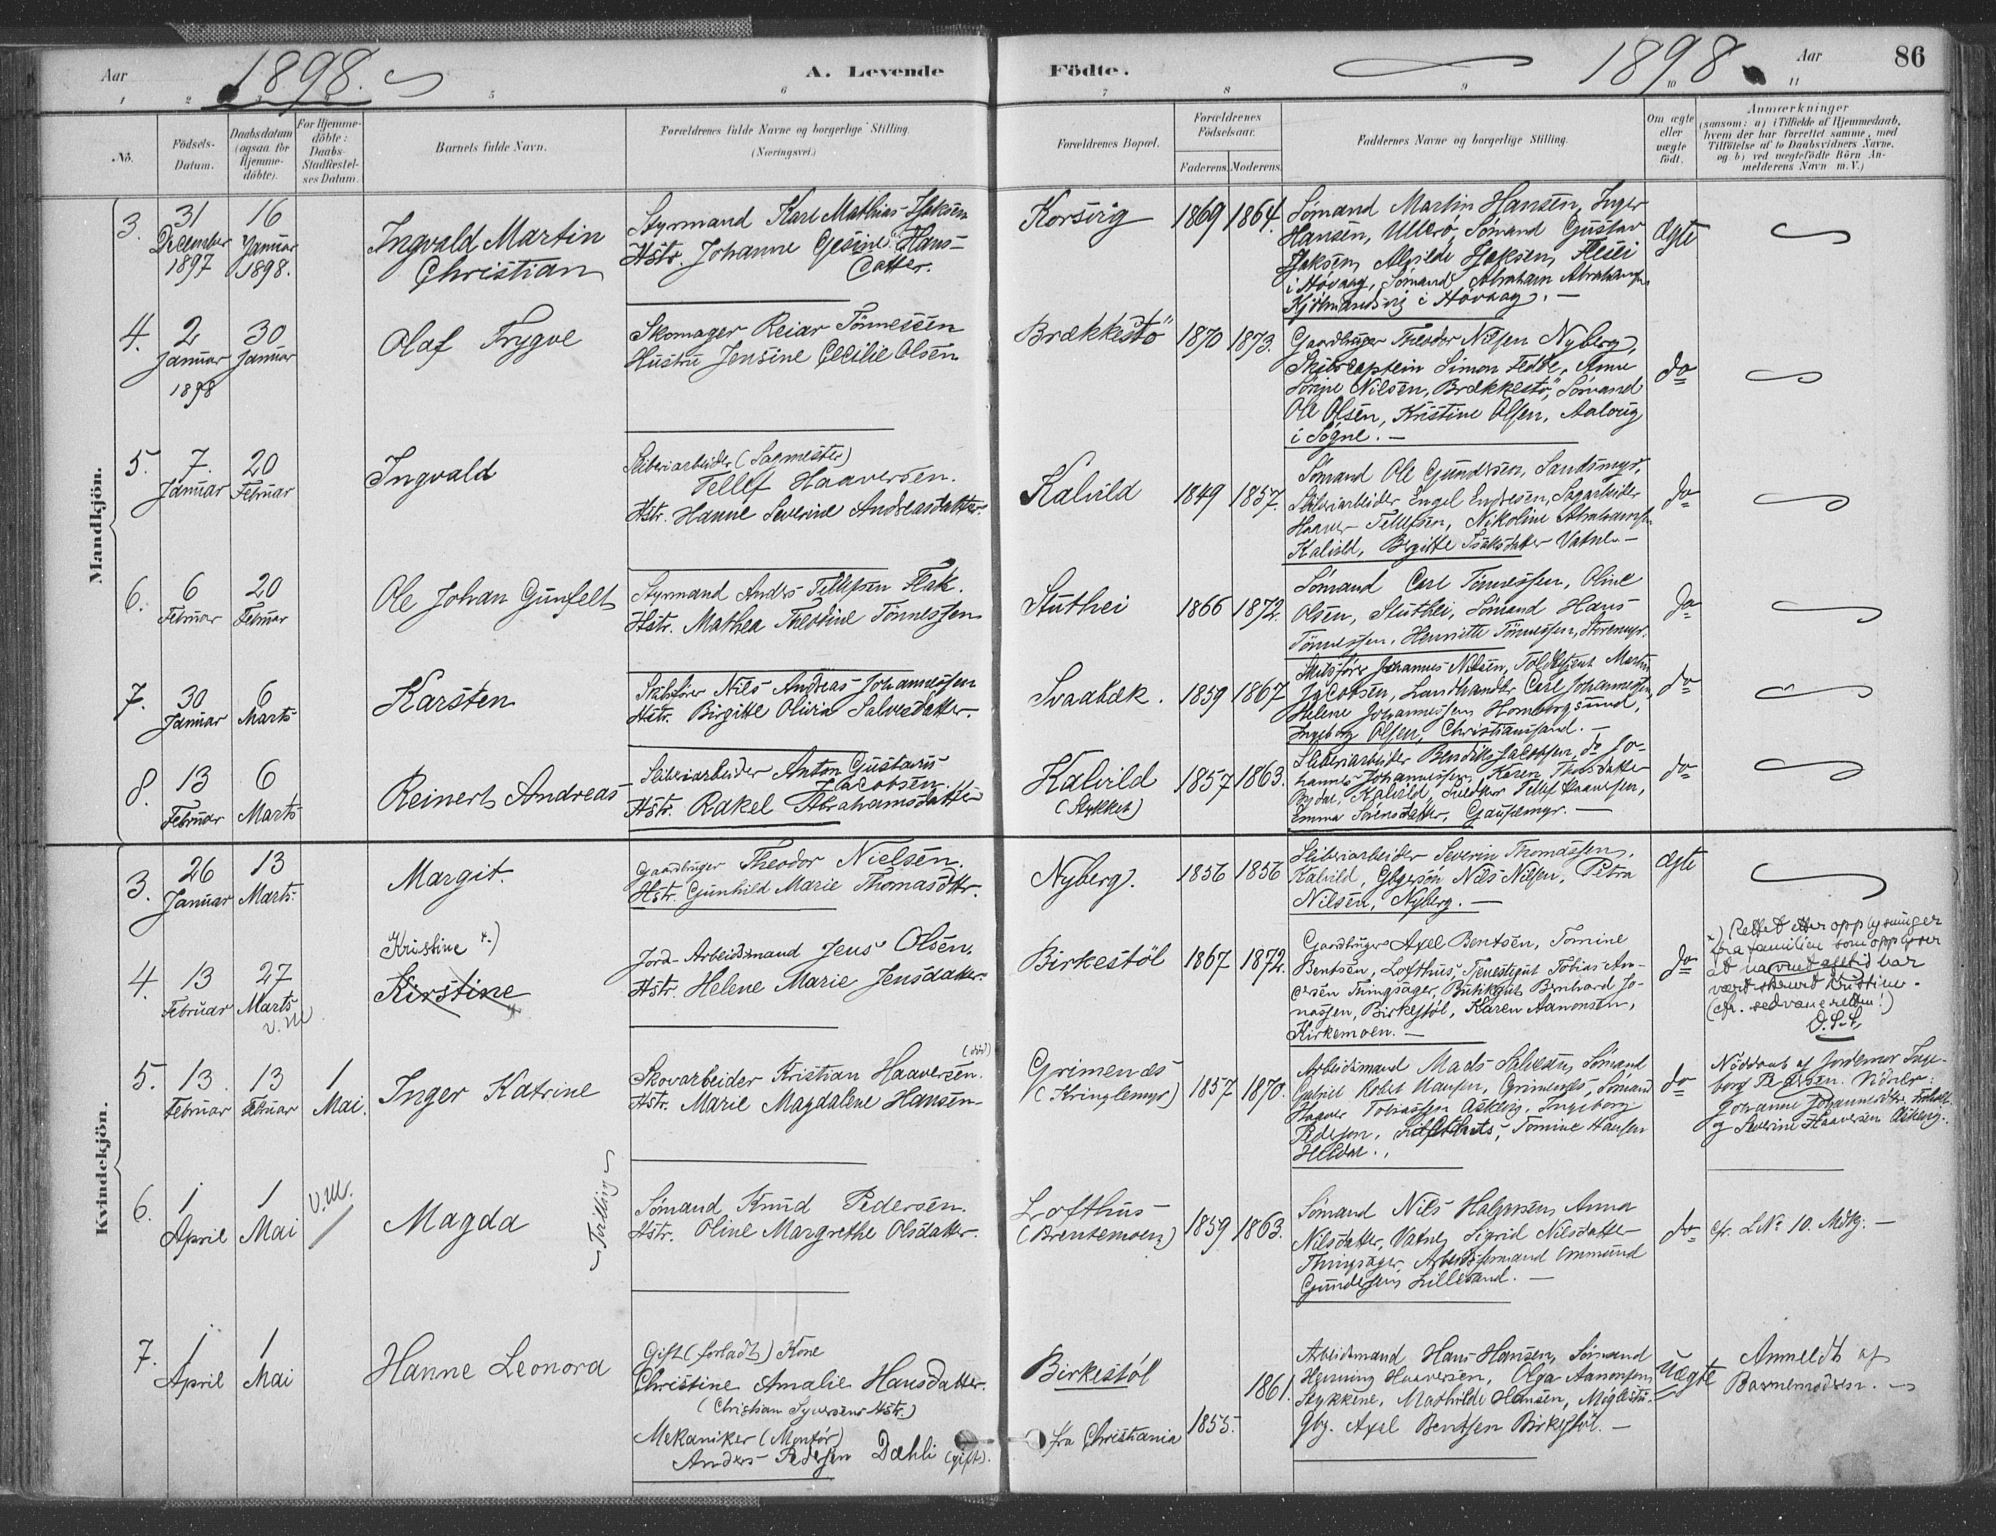 Aar 1898. A. Levende Födte. 1898 Aar 86
1 2 3 5 6 7 8 9 10 11
No. Födsels-Datum. Daabsdatum (ogsaa for Hjemmedöbte). For Hjemmedöbte: Daabs-Stadfæstelses Datum. Barnets fulde Navn. Forældrenes fulde Navne og borgerlige Stilling. (Næringsvei.) Forældrenes Bopæl. Forældrenes Födselsaar. Faderens. Moderens. Faddernes Navne og borgerlige Stilling. Om ægte eller uægte födt. Anmærkninger (saasom: a) i Tilfælde af Hjemmedaab, hvem der har forrettet samme, med Tilföielse af to Daabsvidners Navne, og b) ved uægtefödte Börn Anmelderens Navn m. V.)
Mandkjön.
3. 31 December 1897 16 Januar 1898.
Ingvald Martin
Christian
Styrmand Karl Mathias Isaksen
Hstr. Johanne Gesine Hans-
datter.
Korsvig 1869 1864.
Sömand Martin Hansen, Inger
Hansen, Ulerö, Sömand Gustav
Isaksen, Alvilde Isaksen,
i Hövaag, Sömand Abraham
i Hövaag. —
ægte
4. 2 Januar 1898 30 Januar
Olaf Trygve
Skomager Reiar Tönnesen
Hustru Jensine Cecilie Olsen
Brækkestö 1870 1873.
Gaardbruger Theodor Nilsen Nyberg,
Skibscaptein Simon Fedde, Anne
Sörine Nilsen, Brækkestö, Sömand
Ole Olsen, Kristine Olsen, Aalvig
i Sögne. —
do
5. 7. Januar 20 Februar
Ingvald
Sliberiarbeider (Sagmester)
Tellef Haaversen.
Hstr. Hanne Severine Andreasdatter.
Kalvild 1849 1857.
Sömand Ole Gundersen, Sandsmyr,
Sliberiarbeider Engel Engesen, Sagarbeider
Haaver Tellefsen, Nikoline
Kalvild, Birgitte Isaksdatter Vatne. —
do
6. 6 Februar 20 Februar
Ole Johan Gunfelt
Styrmand Anders Tellefsen Flak.
Hstr. Mathea Theodine Tönnessen
Stuthei 1866 1872.
Sömand Carl Tönnessen, Oline
Olsen, Stuthei, Sömand Hans
Tönnessen, Henriette Tönnessen, Storemyr.
do
7. 30 Januar 6 Marts
Karsten
Skibsförer Nils Andreas Johannessen
Hstr. Birgitte Olivia Salvesdatter.
Svaabæk. 1859 1867
Skibsförer Johannes Nilsen, Toldbetjent Martin
Jacobsen, Landhandler Carl Johannessen
Helene Johannessen Homborgsund,
Ingeborg Olsen, Christianssand. —
do
8. 13 Februar 6 Marts
Reinert Andreas
Sliberiarbeider Anton Gustavus
Jacobsen.
Hstr. Rakel Abrahamsdatter
Kalvild
(Stykket) 1857 1863.
Sliberiarbeider Bendik Jacobsen, do Jo-
hannes Johannessen, Karen Thorsdatter
Kalvild, Tellef Haaversen,
Emma Sörensdatter, Gaupemyr. —
do
Kvindekjön.
3. 26 Januar 13 Marts.
Margit.
Gaardbruger Theodor Nielsen.
Hstr. Gunhild Marie Thomasdtr.
Nyberg. 1856 1856
Sliberiarbeider Severin Thomassen,
Kalvild, Gbgersön Nils Nilsen, Petra
Nilsen, Nyberg. —
ægte
4. 13 Februar 27 Marts
v. m
Kristine x)
Kirstine
Jord-Arbeidsmand Jens Olsen.
Hstr. Helene Marie Jensdatter.
Birkestöl 1867 1872.
Gaardbruger Axel Bentsen, Tomine
Bentsen, Lofthus, Tenestegut Tobias An-
dersen Thingsager, Butikgut Bernhard Jo-
nassen, Birkestöl, Karen Aanonsen,
Kirkemoen. —
do
x) Rettet etter opplysninger
fra familien som opplyser
at navnet altid har
vært skrevet Kristine.
(cfr. sedvaneretten!)
O.S.S.
5. 13. Februar 13 Februar 1 Mai.
Inger Katrine
(död)
Skovarbeider Kristian Haaversen.
Hstr. Marie Magdalene Hansen
Grimenes
(Kringlemyr) 1857 1870.
Arbeidsmand Mads Salvesen, Sömand
Gabriel Robert Hansen, Grimenes, Sömand
Haaver Tobiassen Askevig, Ingeborg
Pedersen, Tomine Hansen
do
Nöddaab af Jordemor Inge-
borg Pedersen. Vidner:
Johanne Johannesdtr.
og Severine Haaversen Askevig.
6. 1 April 1 Mai v.m.
Magda
Tvilling
Sömand Knud Pedersen.
Hstr. Oline Margrethe Olsdatter.
Lofthus
(Brentemoen) 1859 1863.
Sömand Nils Halvorsen, Anna
Nilsdatter, Vatne, Sigrid Nilsdatter
Thingsager, Arbeidsmand Emmund
Gundersen Lillesand. —
do cfr. L No 10. Mdkj. —
7. 1 April 1 Mai
Hanne Leonora
Gift (forladt) Kone
Christine Amalie Hansdatter.
(Christian Syversens Hstr.)
Mekaniker (Montör)
Anders Pedersen Dæhli (gift).
Birkestöl 1861.
fra Christiania 1855.
Arbeidsmand Hans Hansen, Sömand
Henning Haaversen, Olga Aanonsen,
Stykkene, Mathilde Hansen,
Gbg. Axel Bentsen Birkestöl. —
Uægte
Anmeldt af
Barnemoderen.